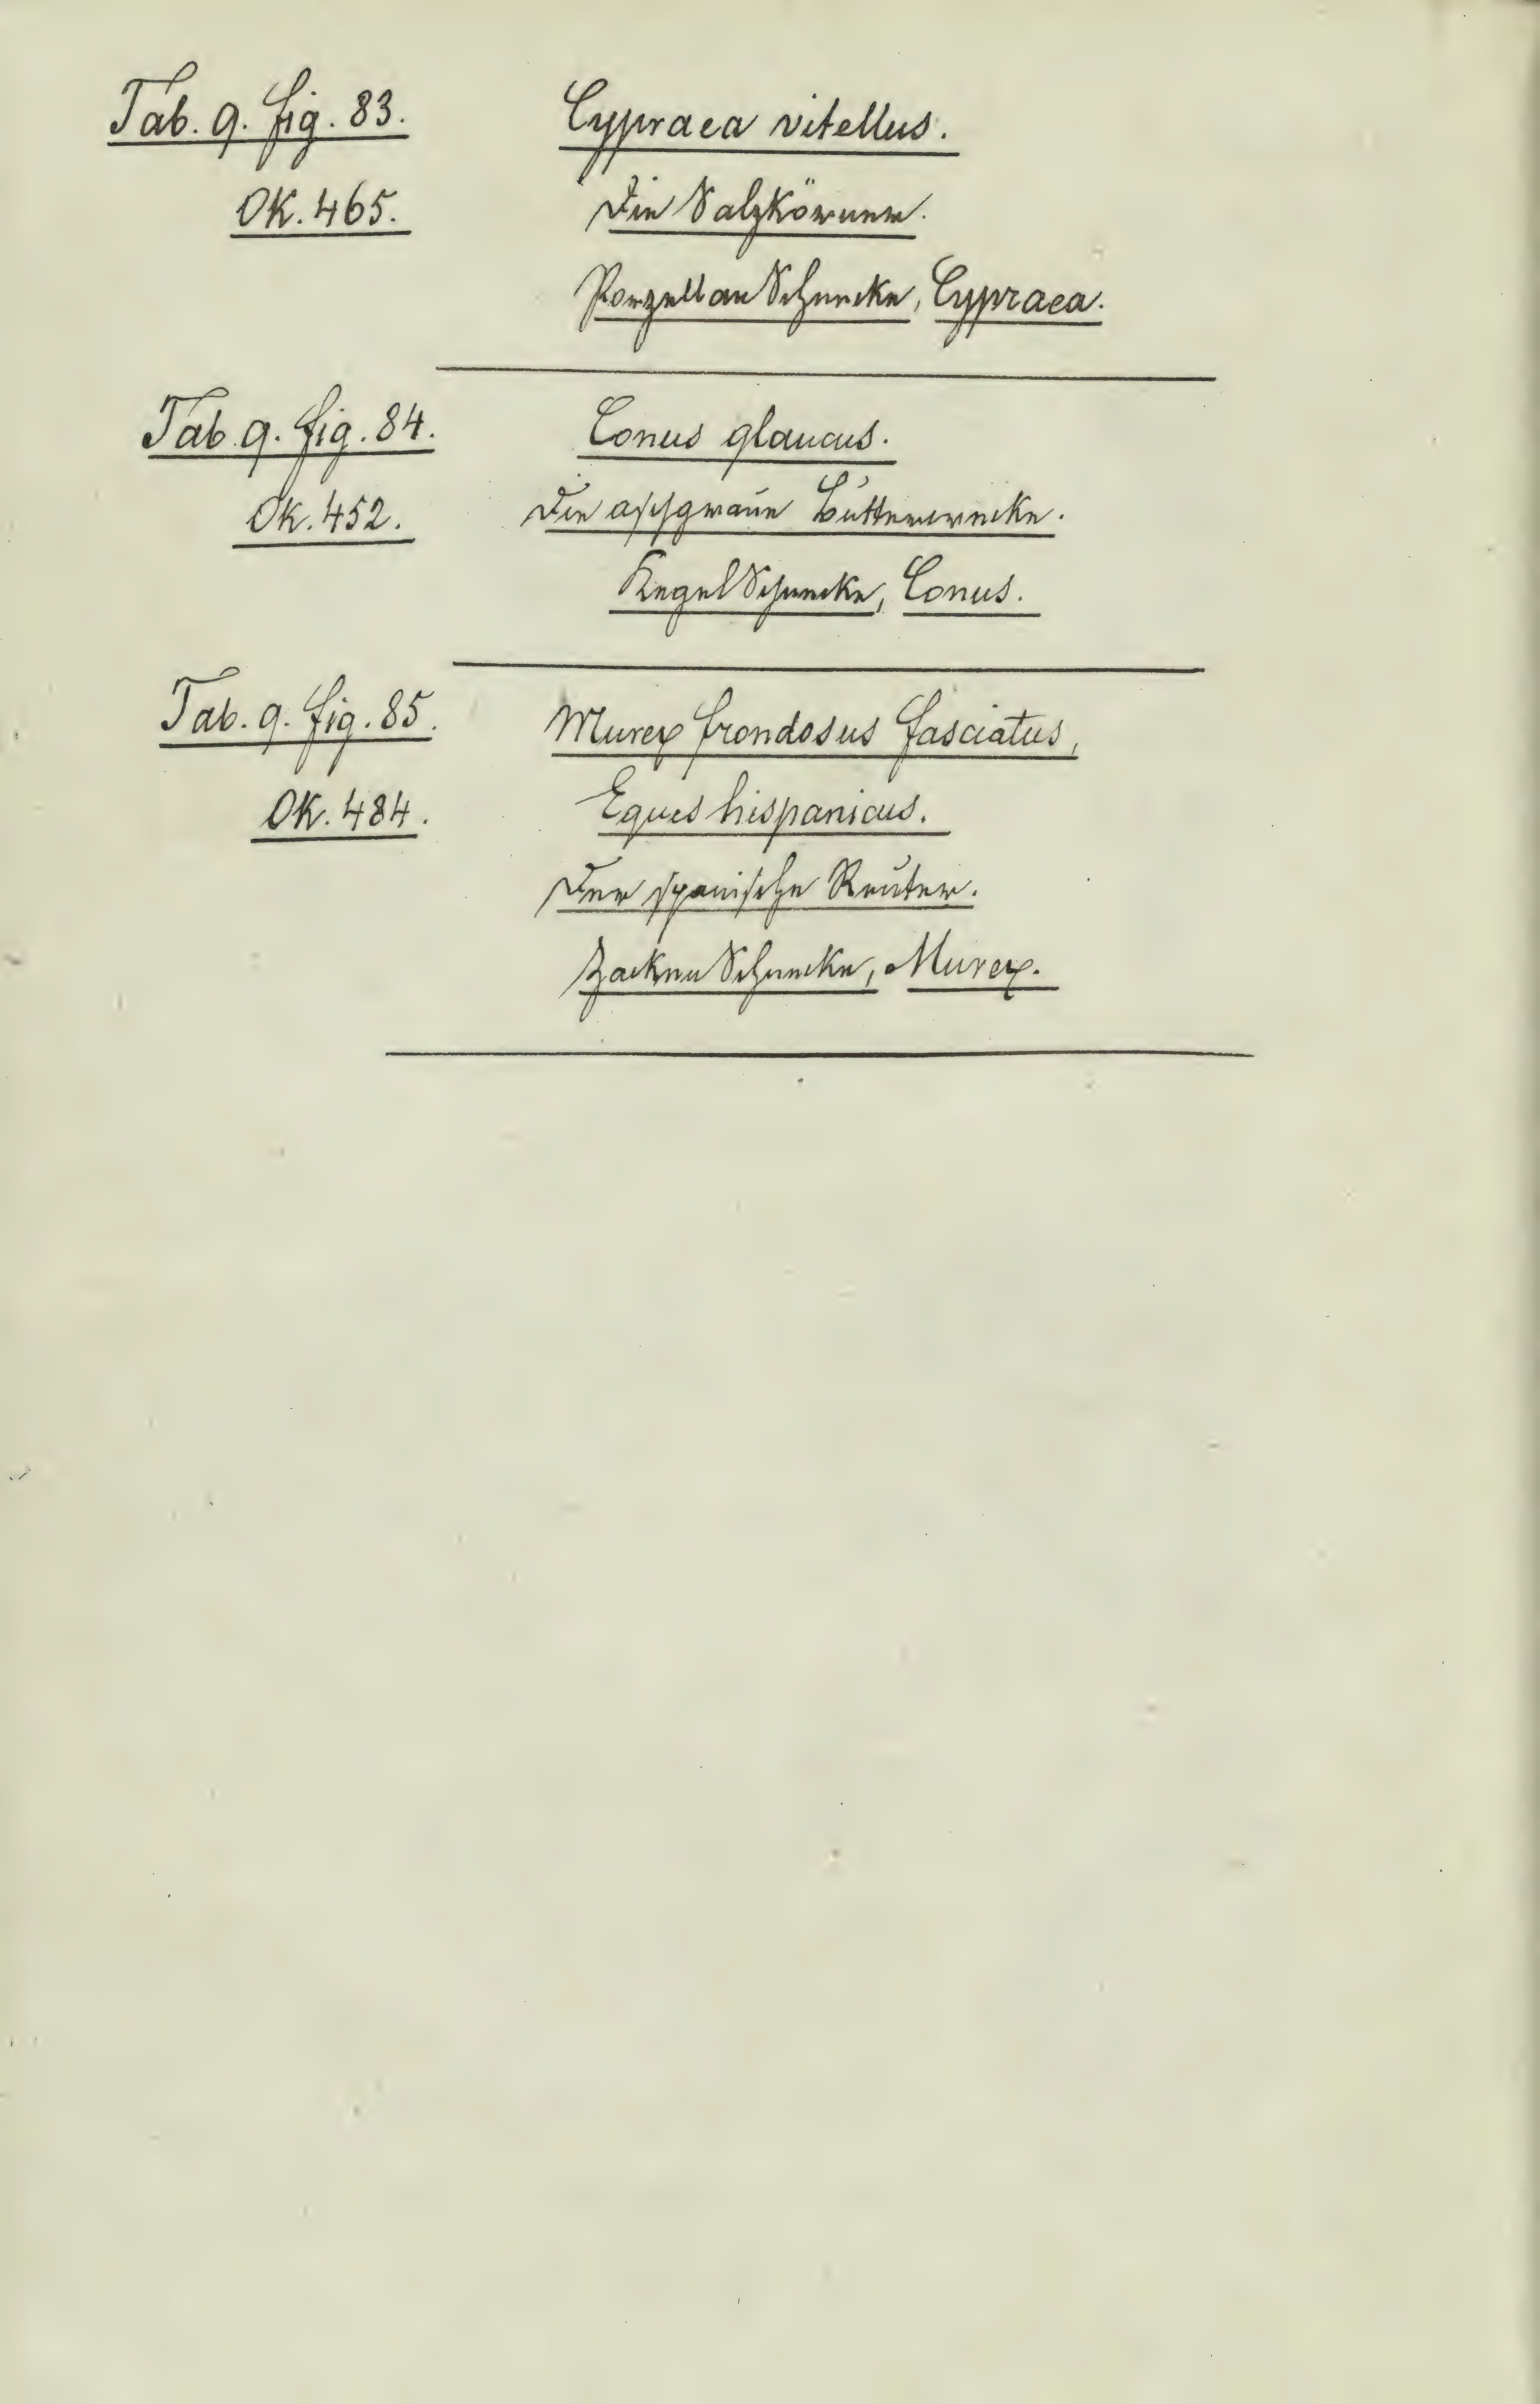 Tab. 9. fig. 83. Cypraea vitellus.
OK. 465. Die Salzkörner.
Porzellan Schnecke, Cypraea.
Tab. 9. fig. 84. Conus glaucus.
Ok. 452. Die aschgraue Butterwecke.
Kegel Schnecke, Conus.
Tab. 9. fig. 85. Murex frondosus fasciatus,
OK. 484. Eques hispanicus.
Der spanische Reuter.
Zacken Schnecke, Murex.